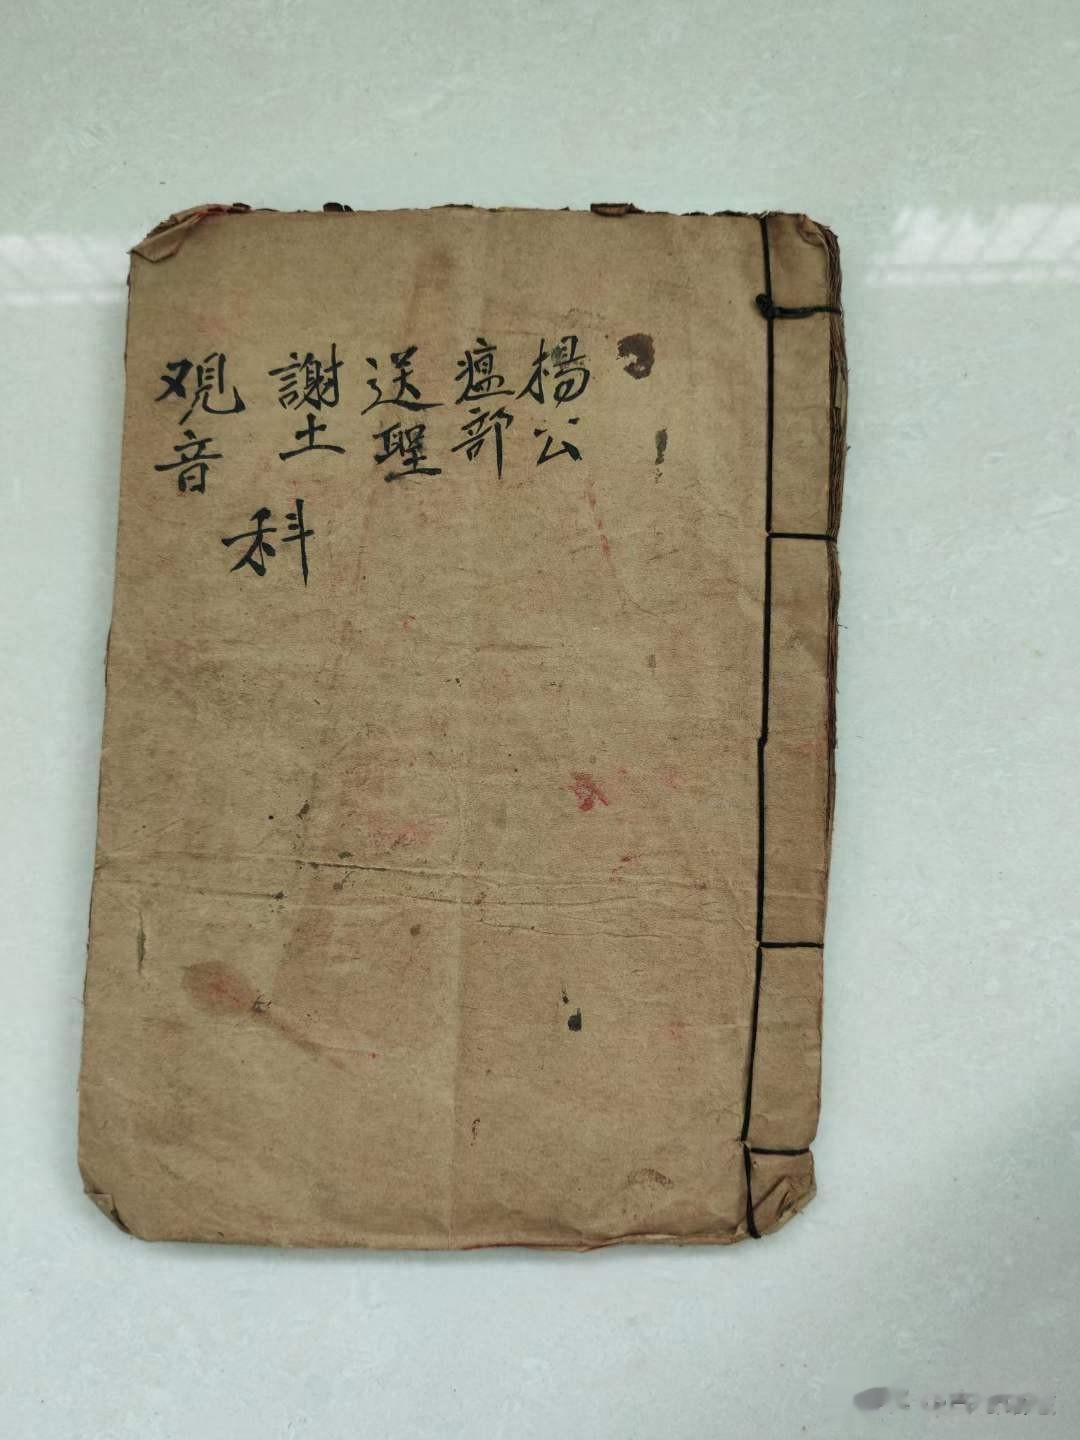 楊公
瘟部
送聖
謝土
观音
科